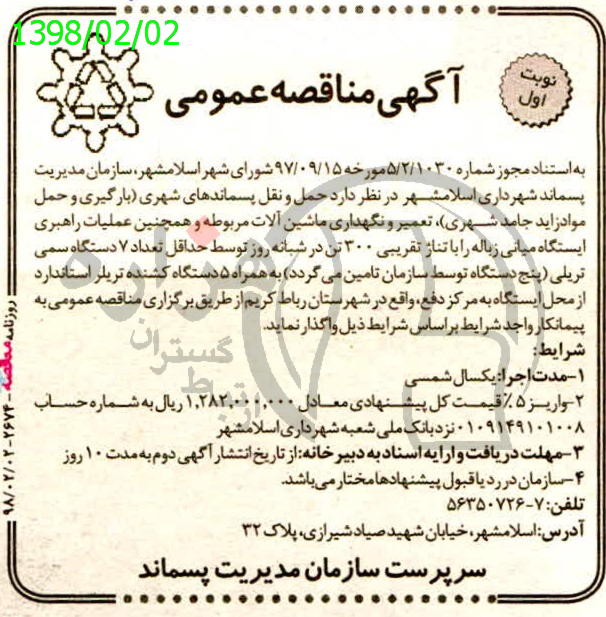 1398/02/02
آگهی مناقصه عمومی
نوبت
اول
به استناد مجوز شماره ۵/۲/۱۰۳۰ مورخه ۹۷/۰۹/۱۵ شورای شهر اسلامشهر، سازمان مدیریت
پسماند شهرداری اسلامشهر در نظر دارد حمل و نقل پسماندهای شهری (بارگیری و حمل
مواد زاید جامد شهری)، تعمیر و نگهداری ماشین آلات مربوطه و همچنین عملیات راهبری
ایستگاه میانی زباله را با تناژ تقریبی ۳۰۰ تن در شبانه روز توسط حداقل تعداد ۷ دستگاه سمی
تریلی (پنج دستگاه توسط سازمان تامین می گردد) به همراه ۵ دستگاه کشنده تریلر استاندارد
از محل ایستگاه به مرکز دفع، واقع در شهرستان رباط کریم از طریق برگزاری مناقصه عمومی به
پیمانکار واجد شرایط بر اساس شرایط ذیل واگذار نماید.
شرایط:
۱-مدت اجرا: یکسال شمسی
۲-واریز ۵٪ قیمت کل پیشنهادی معادل ۱,۲۸۲,۰۰۰,۰۰۰ ریال به شماره حساب
۰۱۰۹۱۴۹۱۰۱۰۰۸ نزد بانک ملی شعبه شهرداری اسلامشهر
۳-مهلت دریافت و ارایه اسناد به دبیر خانه: از تاریخ انتشار آگهی دوم به مدت ۱۰ روز
۴-سازمان در رد یا قبول پیشنهادها مختار می باشد.
تلفن: ۷-۵۶۳۵۰۷۲۶
آدرس: اسلامشهر، خیابان شهید صیاد شیرازی، پلاک ۳۲
سرپرست سازمان مدیریت پسماند
روزنامه مناقصه - ۲۶۷۴ - ۹۸/۰۲/۰۲
هزاره
گستران
ارتباط